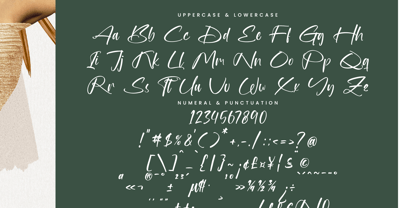 UPPERCASE & LOWERCASE
Aa Bb Cc Dd Ee Ff Gg Hh
Ii Jj Kk Ll Mm Nn Oo Pp Qq
Rr Ss Tt Uu Vv Ww Xx Yy Zz
NUMERAL & PUNCTUATION
1234567890
!"#$%&'()*+,-./:;<=>?@
[\]^_`{|}~¡¢£¤¥¦§¨©